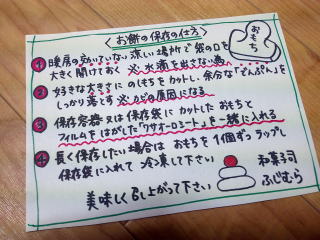 〈お餅の保存の仕方〉
おもち
① 暖房の効いていない涼しい場所で袋の口を
大きく開けておく ※水滴を出さない為
② 好きな大きさにのしもちをカットし、余分な「でんぷん」を
しっかり落とす ※カビの原因になる
③ 保存容器又は保存袋にカットしたおもちと
フィルムをはがした「ワサオーロシート」を一緒に入れる
④ 長く保存したい場合はおもちを1個ずつラップし
保存袋に入れて冷凍して下さい
美味しく召し上がって下さい
和菓子司
ふじむら